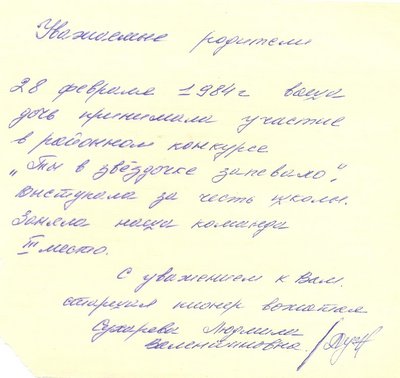 Уважаемые родители
28 февраля 1984 г ваша
дочь принимала участие
в районном конкурсе
„Ты в звёздочке запевало",
выступала за честь школы.
Заняла наша команда
III место.
С уважением к Вам.
старшая пионер вожатая
Сухарева Людмила
Валентиновна.